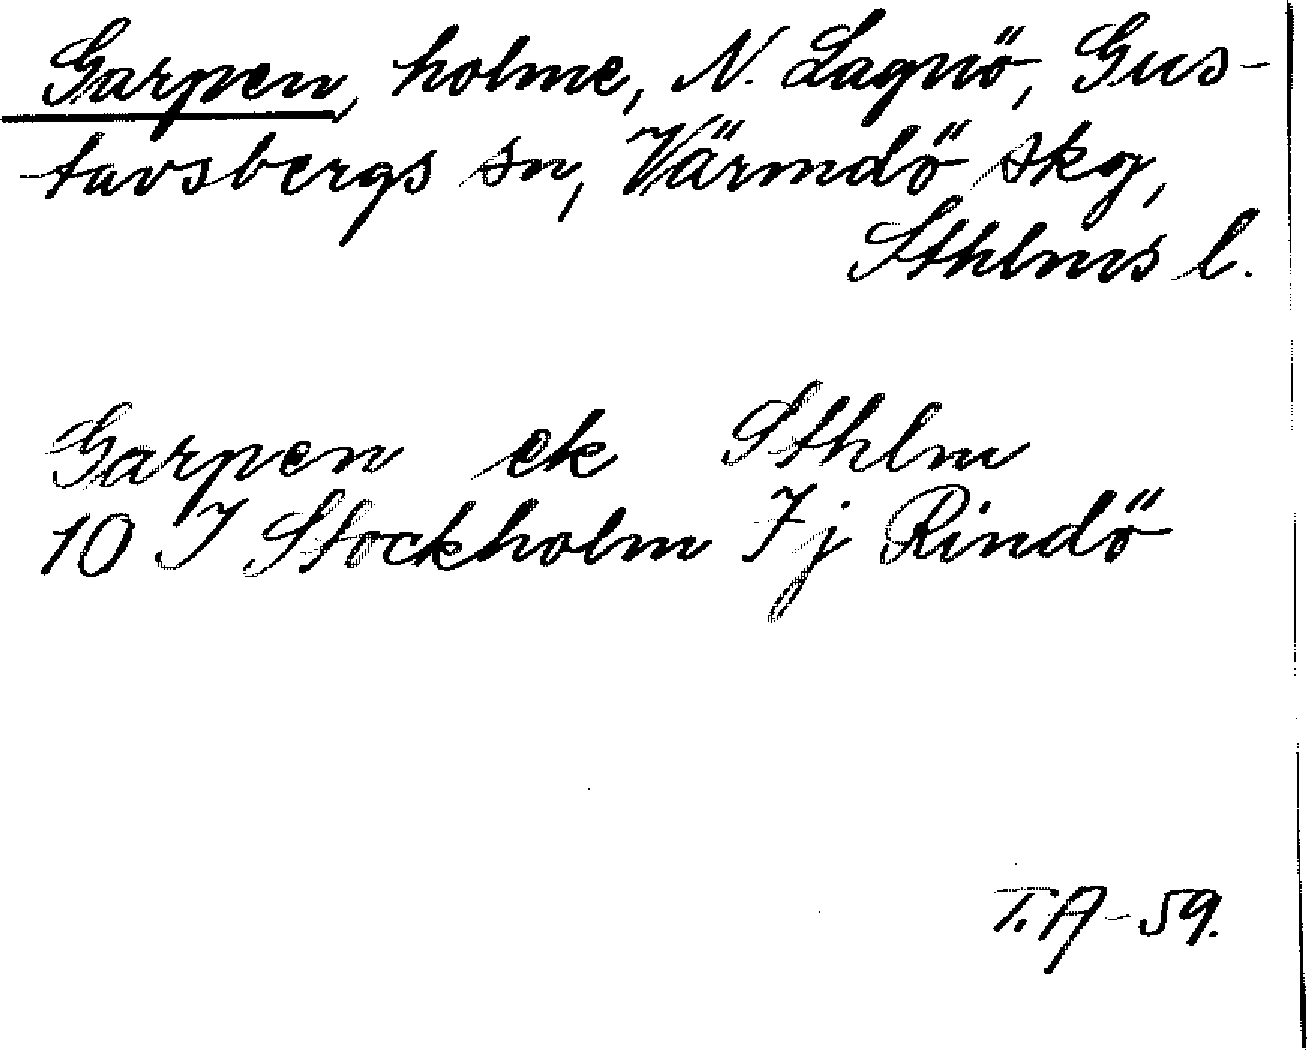 Garpen, holme, N. Lagnö, Gus-
tavsbergs sn, Värmdö skg,
Sthlms l.
Garpen ek Sthlm
10 I Stockholm Ij Rindö
T.A-59.